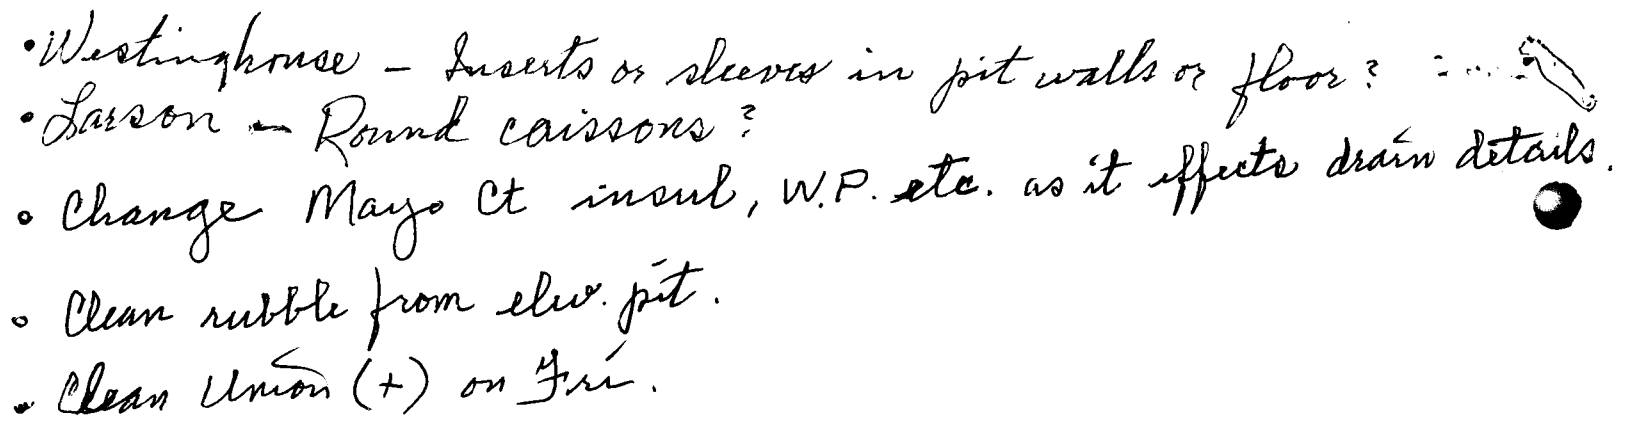 • Westinghouse – Inserts or sleeves in pit walls or floor?
• Larson – Round caissons?
• Change Mayo Ct insul, W.P. etc. as it effects drain details.
• Clean rubble from elev. pit.
• Clean Union (+) on Fri.